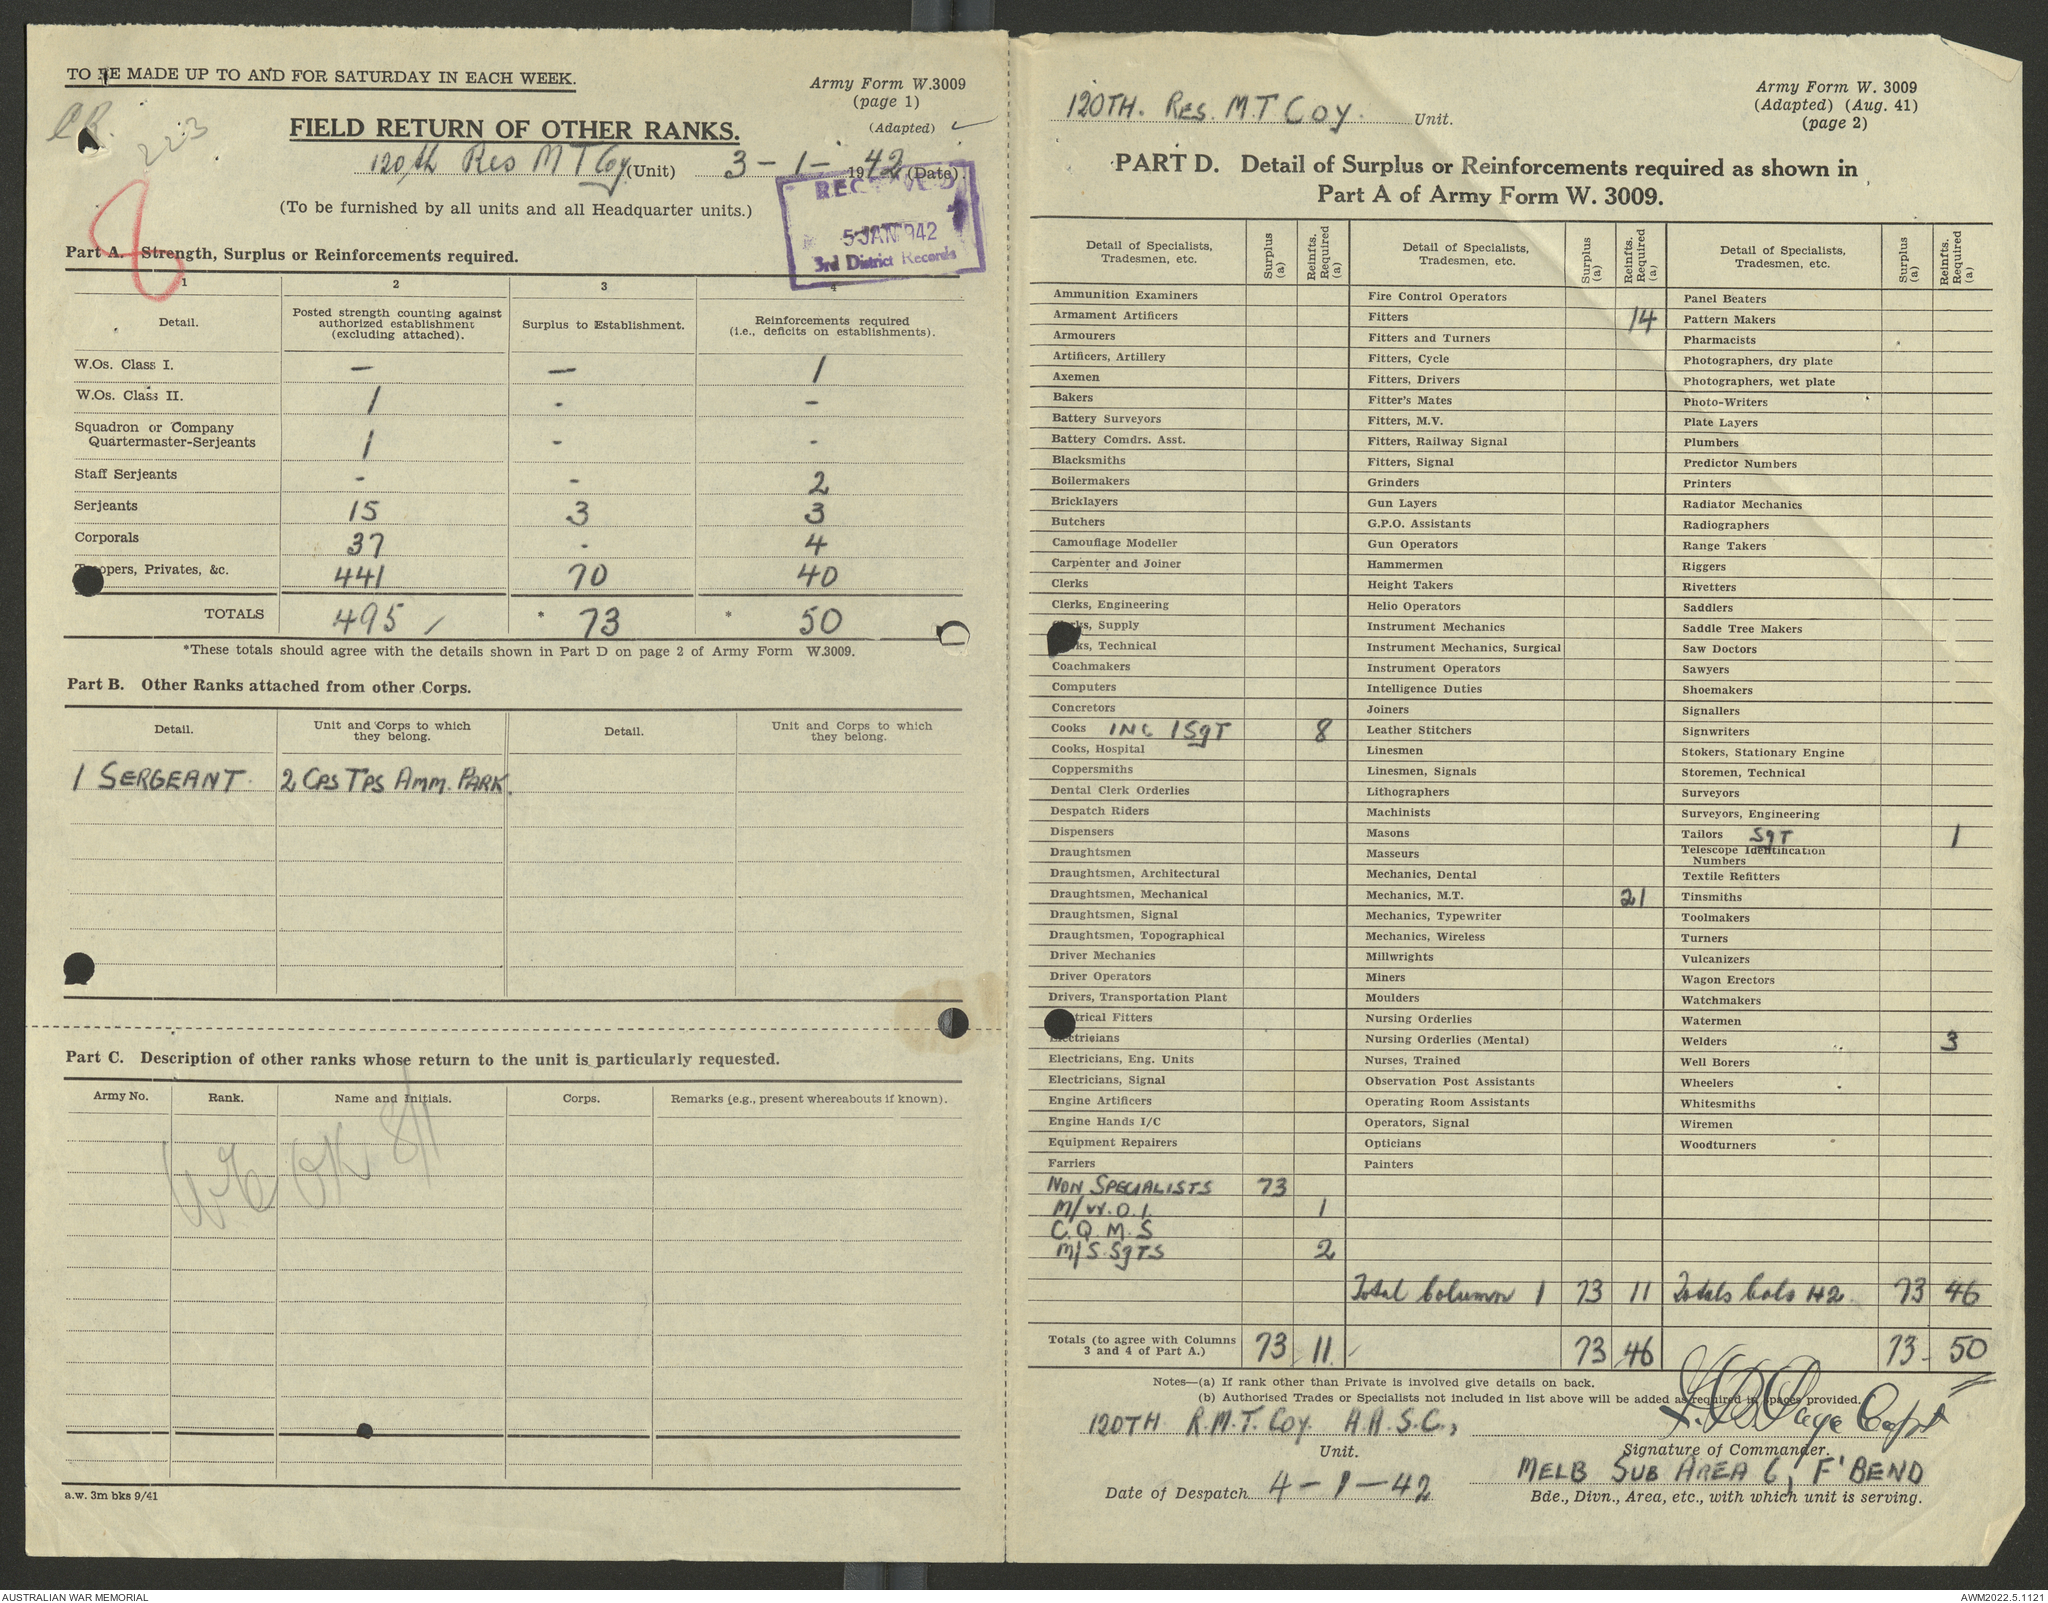 TO BE MADE UP TO AND FOR SATURDAY IN EACH WEEK.
Army Form W.3009
(page 1)
(Adapted)
223
FIELD RETURN OF OTHER RANKS.
120th Res M T Coy (Unit) 3-1-1942 (Date).
RECEIVED
5 JAN 1942
3rd District Records
(To be furnished by all units and all Headquarter units.)
Part A. Strength, Surplus or Reinforcements required.
1 2 3 4
Detail. Posted strength counting against authorized establishment (excluding attached). Surplus to Establishment. Reinforcements required (i.e., deficits on establishments).
W.Os. Class I. — — 1
W.Os. Class II. 1 - -
Squadron or Company Quartermaster-Serjeants 1 - -
Staff Serjeants - - 2
Serjeants 15 3 3
Corporals 37 - 4
Troopers, Privates, &c. 441 70 40
TOTALS 495 * 73 * 50
*These totals should agree with the details shown in Part D on page 2 of Army Form W.3009.
Part B. Other Ranks attached from other Corps.
Detail. Unit and Corps to which they belong. Detail. Unit and Corps to which they belong.
1 SERGEANT. 2 CPS TPS AMM. PARK.
Part C. Description of other ranks whose return to the unit is particularly requested.
Army No. Rank. Name and Initials. Corps. Remarks (e.g., present whereabouts if known).
OK 8/1
a.w. 3m bks 9/41
Army Form W. 3009
(Adapted) (Aug. 41)
(page 2)
120TH. RES. M.T. COY. Unit.
PART D. Detail of Surplus or Reinforcements required as shown in
Part A of Army Form W. 3009.
Detail of Specialists, Tradesmen, etc. Surplus (a) Reinfts. Required (a)
Ammunition Examiners
Armament Artificers
Armourers
Artificers, Artillery
Axemen
Bakers
Battery Surveyors
Battery Comdrs. Asst.
Blacksmiths
Boilermakers
Bricklayers
Butchers
Camouflage Modeller
Carpenter and Joiner
Clerks
Clerks, Engineering
Clerks, Supply
Clerks, Technical
Coachmakers
Computers
Concretors
Cooks INC 1 SgT 8
Cooks, Hospital
Coppersmiths
Dental Clerk Orderlies
Despatch Riders
Dispensers
Draughtsmen
Draughtsmen, Architectural
Draughtsmen, Mechanical
Draughtsmen, Signal
Draughtsmen, Topographical
Driver Mechanics
Driver Operators
Drivers, Transportation Plant
Electrical Fitters
Electricians
Electricians, Eng. Units
Electricians, Signal
Engine Artificers
Engine Hands I/C
Equipment Repairers
Farriers
NON SPECIALISTS 73
M/W.O.1. 1
C.Q.M.S
M/S.SgTS 2
Totals (to agree with Columns 3 and 4 of Part A.) 73 11
Detail of Specialists, Tradesmen, etc. Surplus (a) Reinfts. Required (a)
Fire Control Operators
Fitters 14
Fitters and Turners
Fitters, Cycle
Fitters, Drivers
Fitter's Mates
Fitters, M.V.
Fitters, Railway Signal
Fitters, Signal
Grinders
Gun Layers
G.P.O. Assistants
Gun Operators
Hammermen
Height Takers
Helio Operators
Instrument Mechanics
Instrument Mechanics, Surgical
Instrument Operators
Intelligence Duties
Joiners
Leather Stitchers
Linesmen
Linesmen, Signals
Lithographers
Machinists
Masons
Masseurs
Mechanics, Dental
Mechanics, M.T. 21
Mechanics, Typewriter
Mechanics, Wireless
Millwrights
Miners
Moulders
Nursing Orderlies
Nursing Orderlies (Mental)
Nurses, Trained
Observation Post Assistants
Operating Room Assistants
Operators, Signal
Opticians
Painters
Total Column 1 73 11
73 46
Detail of Specialists, Tradesmen, etc. Surplus (a) Reinfts. Required (a)
Panel Beaters
Pattern Makers
Pharmacists
Photographers, dry plate
Photographers, wet plate
Photo-Writers
Plate Layers
Plumbers
Predictor Numbers
Printers
Radiator Mechanics
Radiographers
Range Takers
Riggers
Rivetters
Saddlers
Saddle Tree Makers
Saw Doctors
Sawyers
Shoemakers
Signallers
Signwriters
Stokers, Stationary Engine
Storemen, Technical
Surveyors
Surveyors, Engineering
Tailors SgT 1
Telescope Identification Numbers
Textile Refitters
Tinsmiths
Toolmakers
Turners
Vulcanizers
Wagon Erectors
Watchmakers
Watermen
Welders 3
Well Borers
Wheelers
Whitesmiths
Wiremen
Woodturners
Totals Cols 1+2. 73 46
73 50
Notes—(a) If rank other than Private is involved give details on back.
(b) Authorised Trades or Specialists not included in list above will be added as required in spaces provided.
120TH R.M.T. COY. A.A.S.C., Page Capt
Unit. Signature of Commander.
MELB SUB AREA 6, F'BEND
Date of Despatch 4-1-42 Bde., Divn., Area, etc., with which unit is serving.
AUSTRALIAN WAR MEMORIAL
AWM2022.5.1121